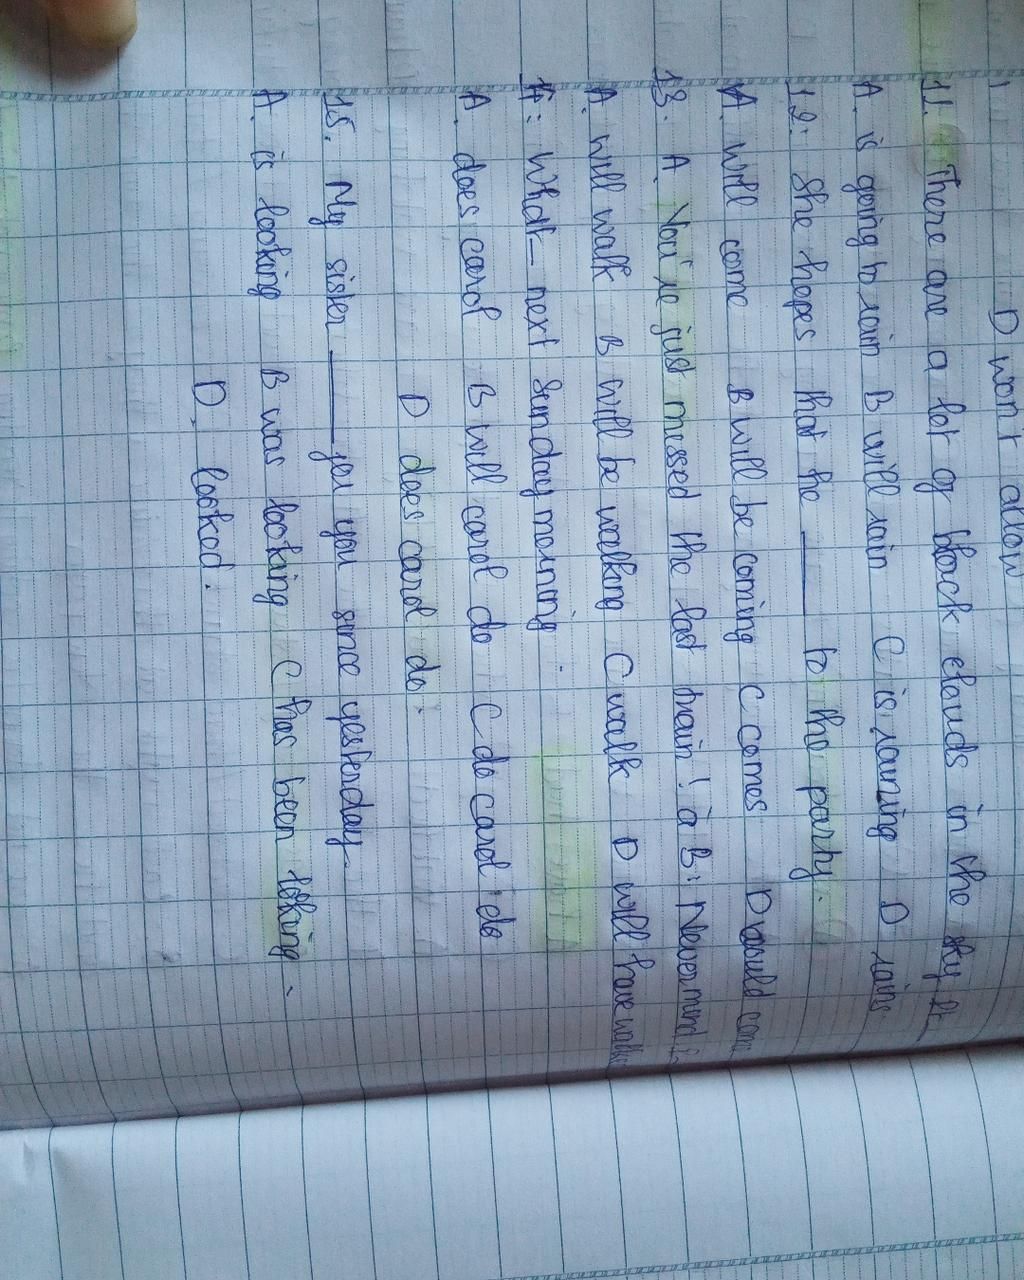 D won't allow
11. There are a lot of black clouds in the sky It
A. is going to rain B will rain C is raining D rains
12: She hopes that he ____ to the party.
A. will come B will be coming C comes D would come
13. A. You're just messed the last train! à B: Never mind
A. will walk B will be walking C walk D will have
14: What_ next Sunday morning.
A. does carol B will carol do C do carol do
D does carol do.
15. My sister ____ for you since yesterday.
A. is looking B was looking C has been loking.
D. looked.